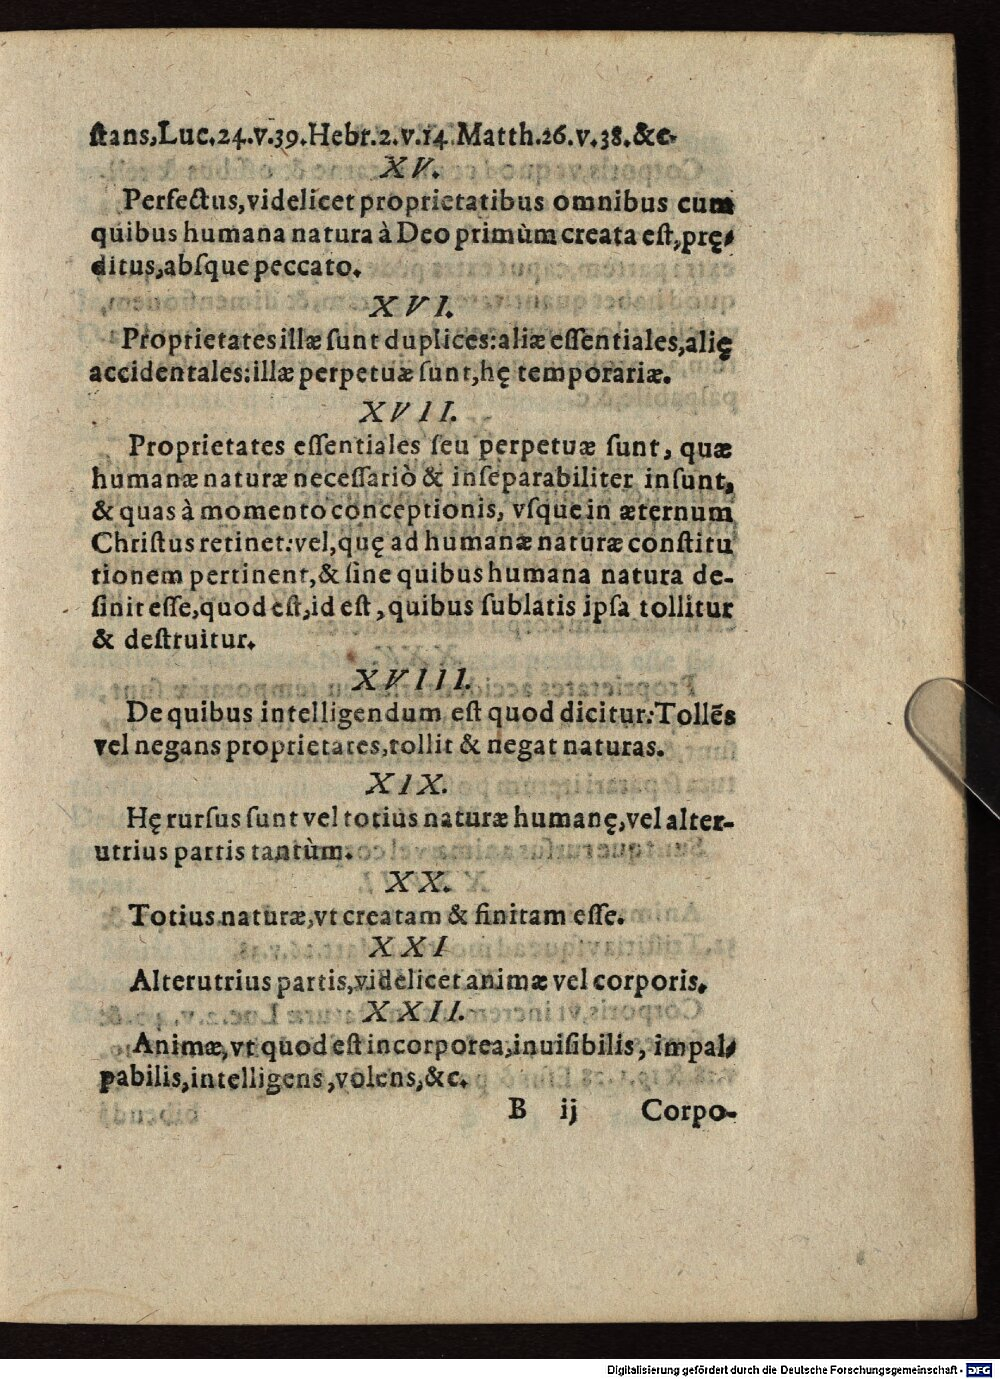 ſtans,Luc.24.v.39.Hebr.2.v.14.Matth.26.v.38.&c.
XV.
Perfectus,videlicet proprietatibus omnibus cum
quibus humana natura à Deo primùm creata eſt,prę-
ditus,abſque peccato.
XVI.
Proprietates illæ ſunt duplices:aliæ eſſentiales,alię
accidentales:illæ perpetuæ ſunt,hę temporariæ.
XVII.
Proprietates eſſentiales ſeu perpetuæ ſunt, quæ
humanæ naturæ neceſſariò & inſeparabiliter inſunt,
& quas à momento conceptionis, vſque in æternum
Chriſtus retinet:vel,quę ad humanæ naturæ conſtitu
tionem pertinent,& ſine quibus humana natura de-
ſinit eſſe,quod eſt,id eſt, quibus ſublatis ipſa tollitur
& deſtruitur.
XVIII.
De quibus intelligendum eſt quod dicitur:Tollẽs
vel negans proprietates,tollit & negat naturas.
XIX.
Hę rurſus ſunt vel totius naturæ humanę,vel alter-
utrius partis tantùm.
XX.
Totius naturæ,vt creatam & finitam eſſe.
XXI
Alterutrius partis,videlicet animæ vel corporis.
XXII.
Animæ,vt quod eſt incorporea,inuiſibilis, impal-
pabilis,intelligens,volens,&c.
B ij Corpo-
Digitalisierung gefördert durch die Deutsche Forschungsgemeinschaft - DFG